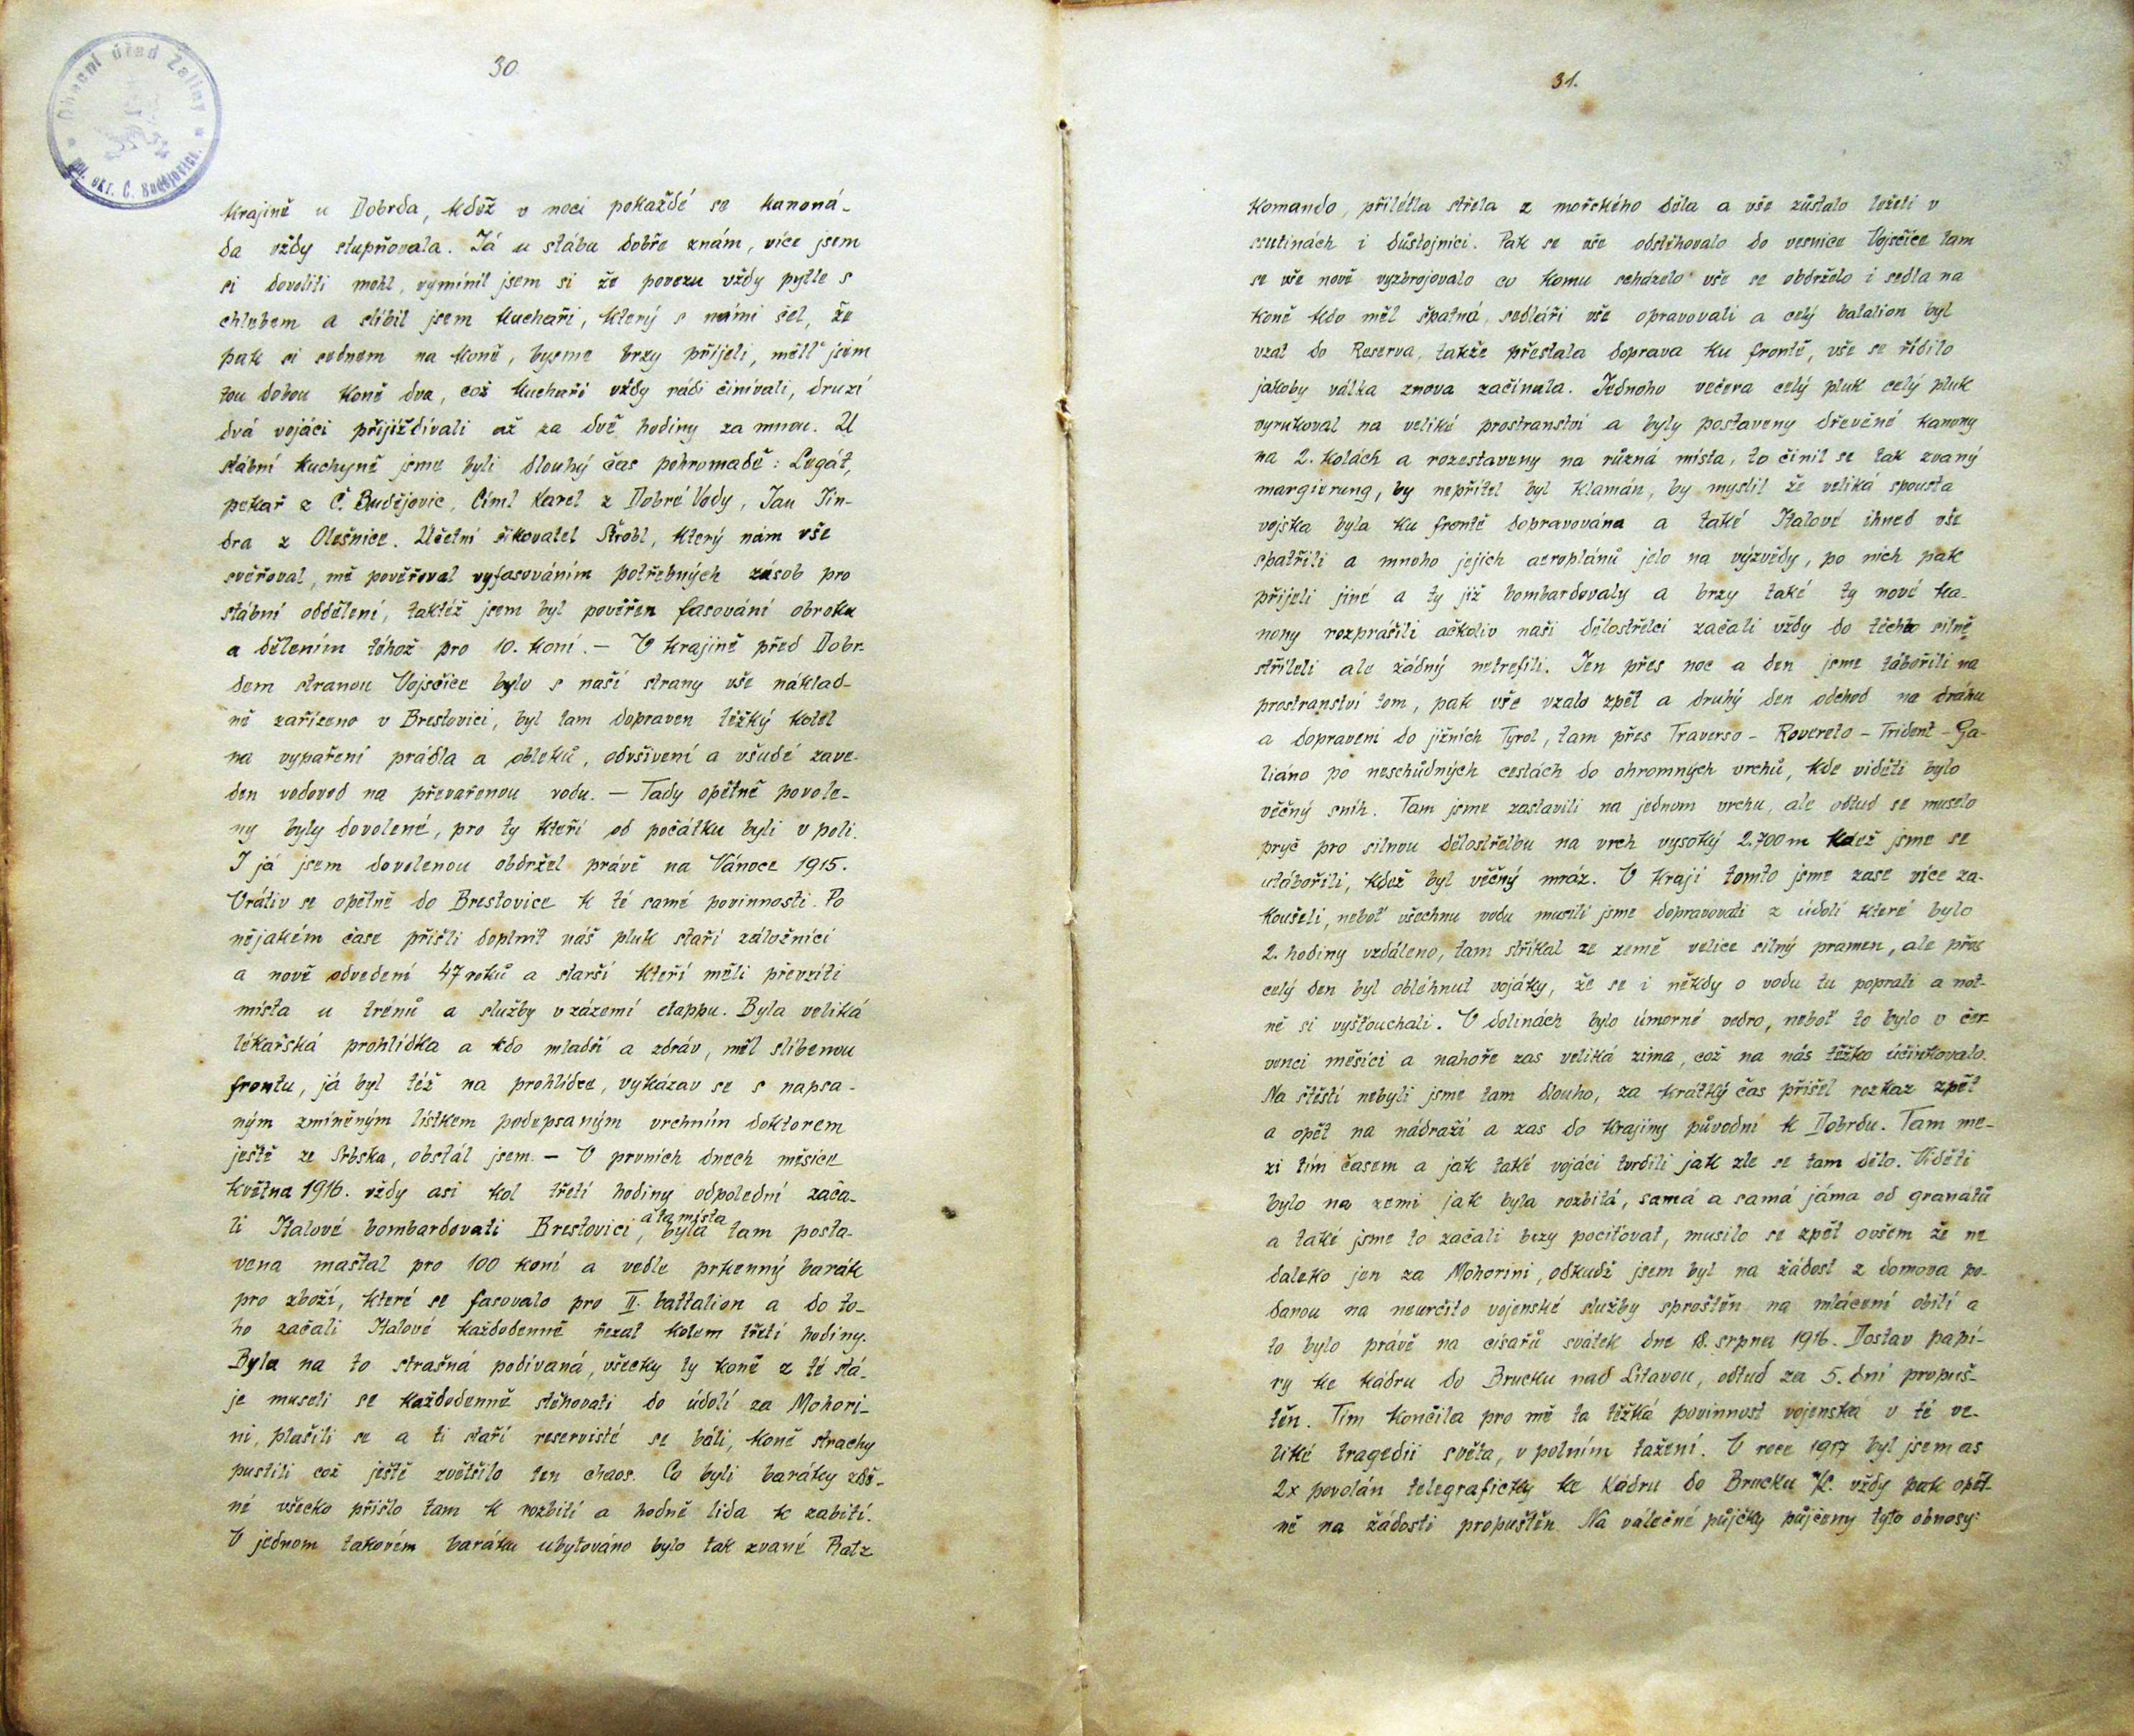 Obecní úřad Žaliny
pol. okr. Č. Budějovice.
30.
krajině u Dobrda, kdež v noci pokaždé se kanoná-
da vždy stupňovala. Já u stábu dobře znám, více jsem
si dovoliti mohl, vymínil jsem si že povezu vždy pytle s
chlebem a slíbil jsem kuchaři, který s námi šel, že
pak si sednem na koně, bysme brzy přijeli, měltˇ jsem
tou dobou koně dva, což kuchaři vždy rádi činívali, druzí
dvá vojáci přijíždívali až za dvě hodiny za mnou. U
stábní kuchyně jsme byli dlouhý čas pohromadě: Legát,
pekař z Č. Budějovic, Címl Karel z Dobré Vody, Jan Jin-
dra z Olešnice. Účetní šikovatel Štrobl, který nám vše
svěřoval, mě pověřoval vyfasováním potřebných zásob pro
stábní oddělení, taktéž jsem byl pověřen fasování obroku
a dělením téhož pro 10. koní. — V krajině před Dobr-
dem stranou Vojsčice bylo s naší strany vše náklad-
ně zařízeno v Brestovici, byl tam dopraven těžký kotel
na vypaření prádla a obleků, odvšivení a všudé zave-
den vodovod na převařenou vodu. — Tady opětně povole-
ny byly dovolené, pro ty kteří od počátku byli v poli.
I já jsem dovolenou obdržel právě na Vánoce 1915.
Vrátiv se opětně do Brestovice k té samé povinnosti. Po
nějakém čase přišli doplnit náš pluk staří záložníci
a nově odvedení 47 roků a starší kteří měli převzíti
místa u trénů a služby v zázemí etappu. Byla veliká
lékařská prohlídka a kdo mladší a zdráv, měl slíbenou
frontu, já byl též na prohlídce, vykázav se s napsa-
ným zmíněným lístkem podepsaným vrchním doktorem
ještě ze Srbska, obstál jsem. — V prvních dnech měsíce
května 1916. vždy asi kol třetí hodiny odpolední zača-
li Italové bombardovati Brestovici a ta místa, byla tam posta-
vena maštal pro 100 koní a vedle prkenný barák
pro zboží, které se fasovalo pro II. battalion a do to-
ho začali Italové každodenně řezat kolem třetí hodiny.
Byla na to strašná podívaná, všecky ty koně z té stá-
je museli se každodenně stěhovati do údolí za Mohori-
ni, plašili se a ti staří reservisté se báli, koně strachy
pustili což ještě zvětšilo ten chaos. Co byli baráky zdě-
né všecko přišlo tam k rozbití a hodně lidu k zabití.
V jednom takovém baráku ubytováno bylo tak zvané Patz
31.
Komando, přilétla střela z mořského děla a vše zůstalo ležeti v
ssutinách i důstojníci. Pak se vše odstěhovalo do vesnice Vojsčíce tam
se vše nově vyzbrojovalo co komu scházelo vše se obdrželo i sedla na
koně kdo měl špatná, sedláři vše opravovali a celý batalion byl
vzat do Reserva, takže přestala doprava ku frontě, vše se řídilo
jakoby válka znova začínala. Jednoho večera celý pluk celý pluk
vyrukoval na veliké prostranství a byly postaveny dřevěné kanony
na 2. kolách a rozestaveny na různá místa, to činil se tak zvaný
margierung, by nepřítel byl klamán, by myslil že veliká spousta
vojska byla ku frontě dopravována a také Italové ihned vše
spatřili a mnoho jejich aeroplánů jelo na výzvědy, po nich pak
přijeli jiné a ty již bombardovaly a brzy také ty nové ka-
nony rozprášili ačkoliv naši dělostřelci začali vždy do těchto silně
stříleli ale žádný netrefili. Jen přes noc a den jsme tábořili na
prostranství tom, pak vše vzalo zpět a druhý den odchod na dráhu
a dopravení do jižních Tyrol, tam přes Traverso - Rovereto - Trident - Ga-
liáno po neschůdných cestách do ohromných vrchů, kde viděti bylo
věčný sníh. Tam jsme zastavili na jednom vrchu, ale odtud se muselo
pryč pro silnou dělostřelbu na vrch vysoký 2.700 m kdež jsme se
utábořili, kdež byl věčný mráz. V kraji tomto jsme zase více za-
koušeli, neboť všechnu vodu musili jsme dopravovati z údolí které bylo
2. hodiny vzdáleno, tam stříkal ze země velice silný pramen, ale přes
celý den byl oblehnut vojáky, že se i někdy o vodu tu poprali a not-
ně si vyšťouchali. V dolinách bylo úmorné vedro, neboť to bylo v čer-
venci měsíci a nahoře zas veliká zima, což na nás těžko účinkovalo.
Na štěstí nebyli jsme tam dlouho, za krátký čas přišel rozkaz zpět
a opět na nádraží a zas do krajiny původní k Dobrdu. Tam me-
zi tím časem a jak také vojáci tvrdili jak zle se tam dělo. Viděti
bylo na zemi jak byla rozbitá, samá a samá jáma od granátů
a také jsme to začali brzy pociťovat, musilo se zpět ovšem že ne
daleko jen za Mohorini, odkudž jsem byl na žádost z domova po-
danou na neurčito vojenské služby sproštěn na mlácení obilí a
to bylo právě na císařů svátek dne 18. srpna 1916. Dostav papí-
ry ke kádru do Brucku nad Litavou, odtud za 5. dní propuš-
těn. Tím končila pro mě ta těžká povinnost vojenská v té ve-
liké tragedii světa, v polním tažení. V roce 1917 byl jsem as
2x povolán telegraficky ke kádru do Brucku n/L. vždy pak opět-
ně na žádosti propuštěn. Na válečné půjčky půjčeny tyto obnosy: